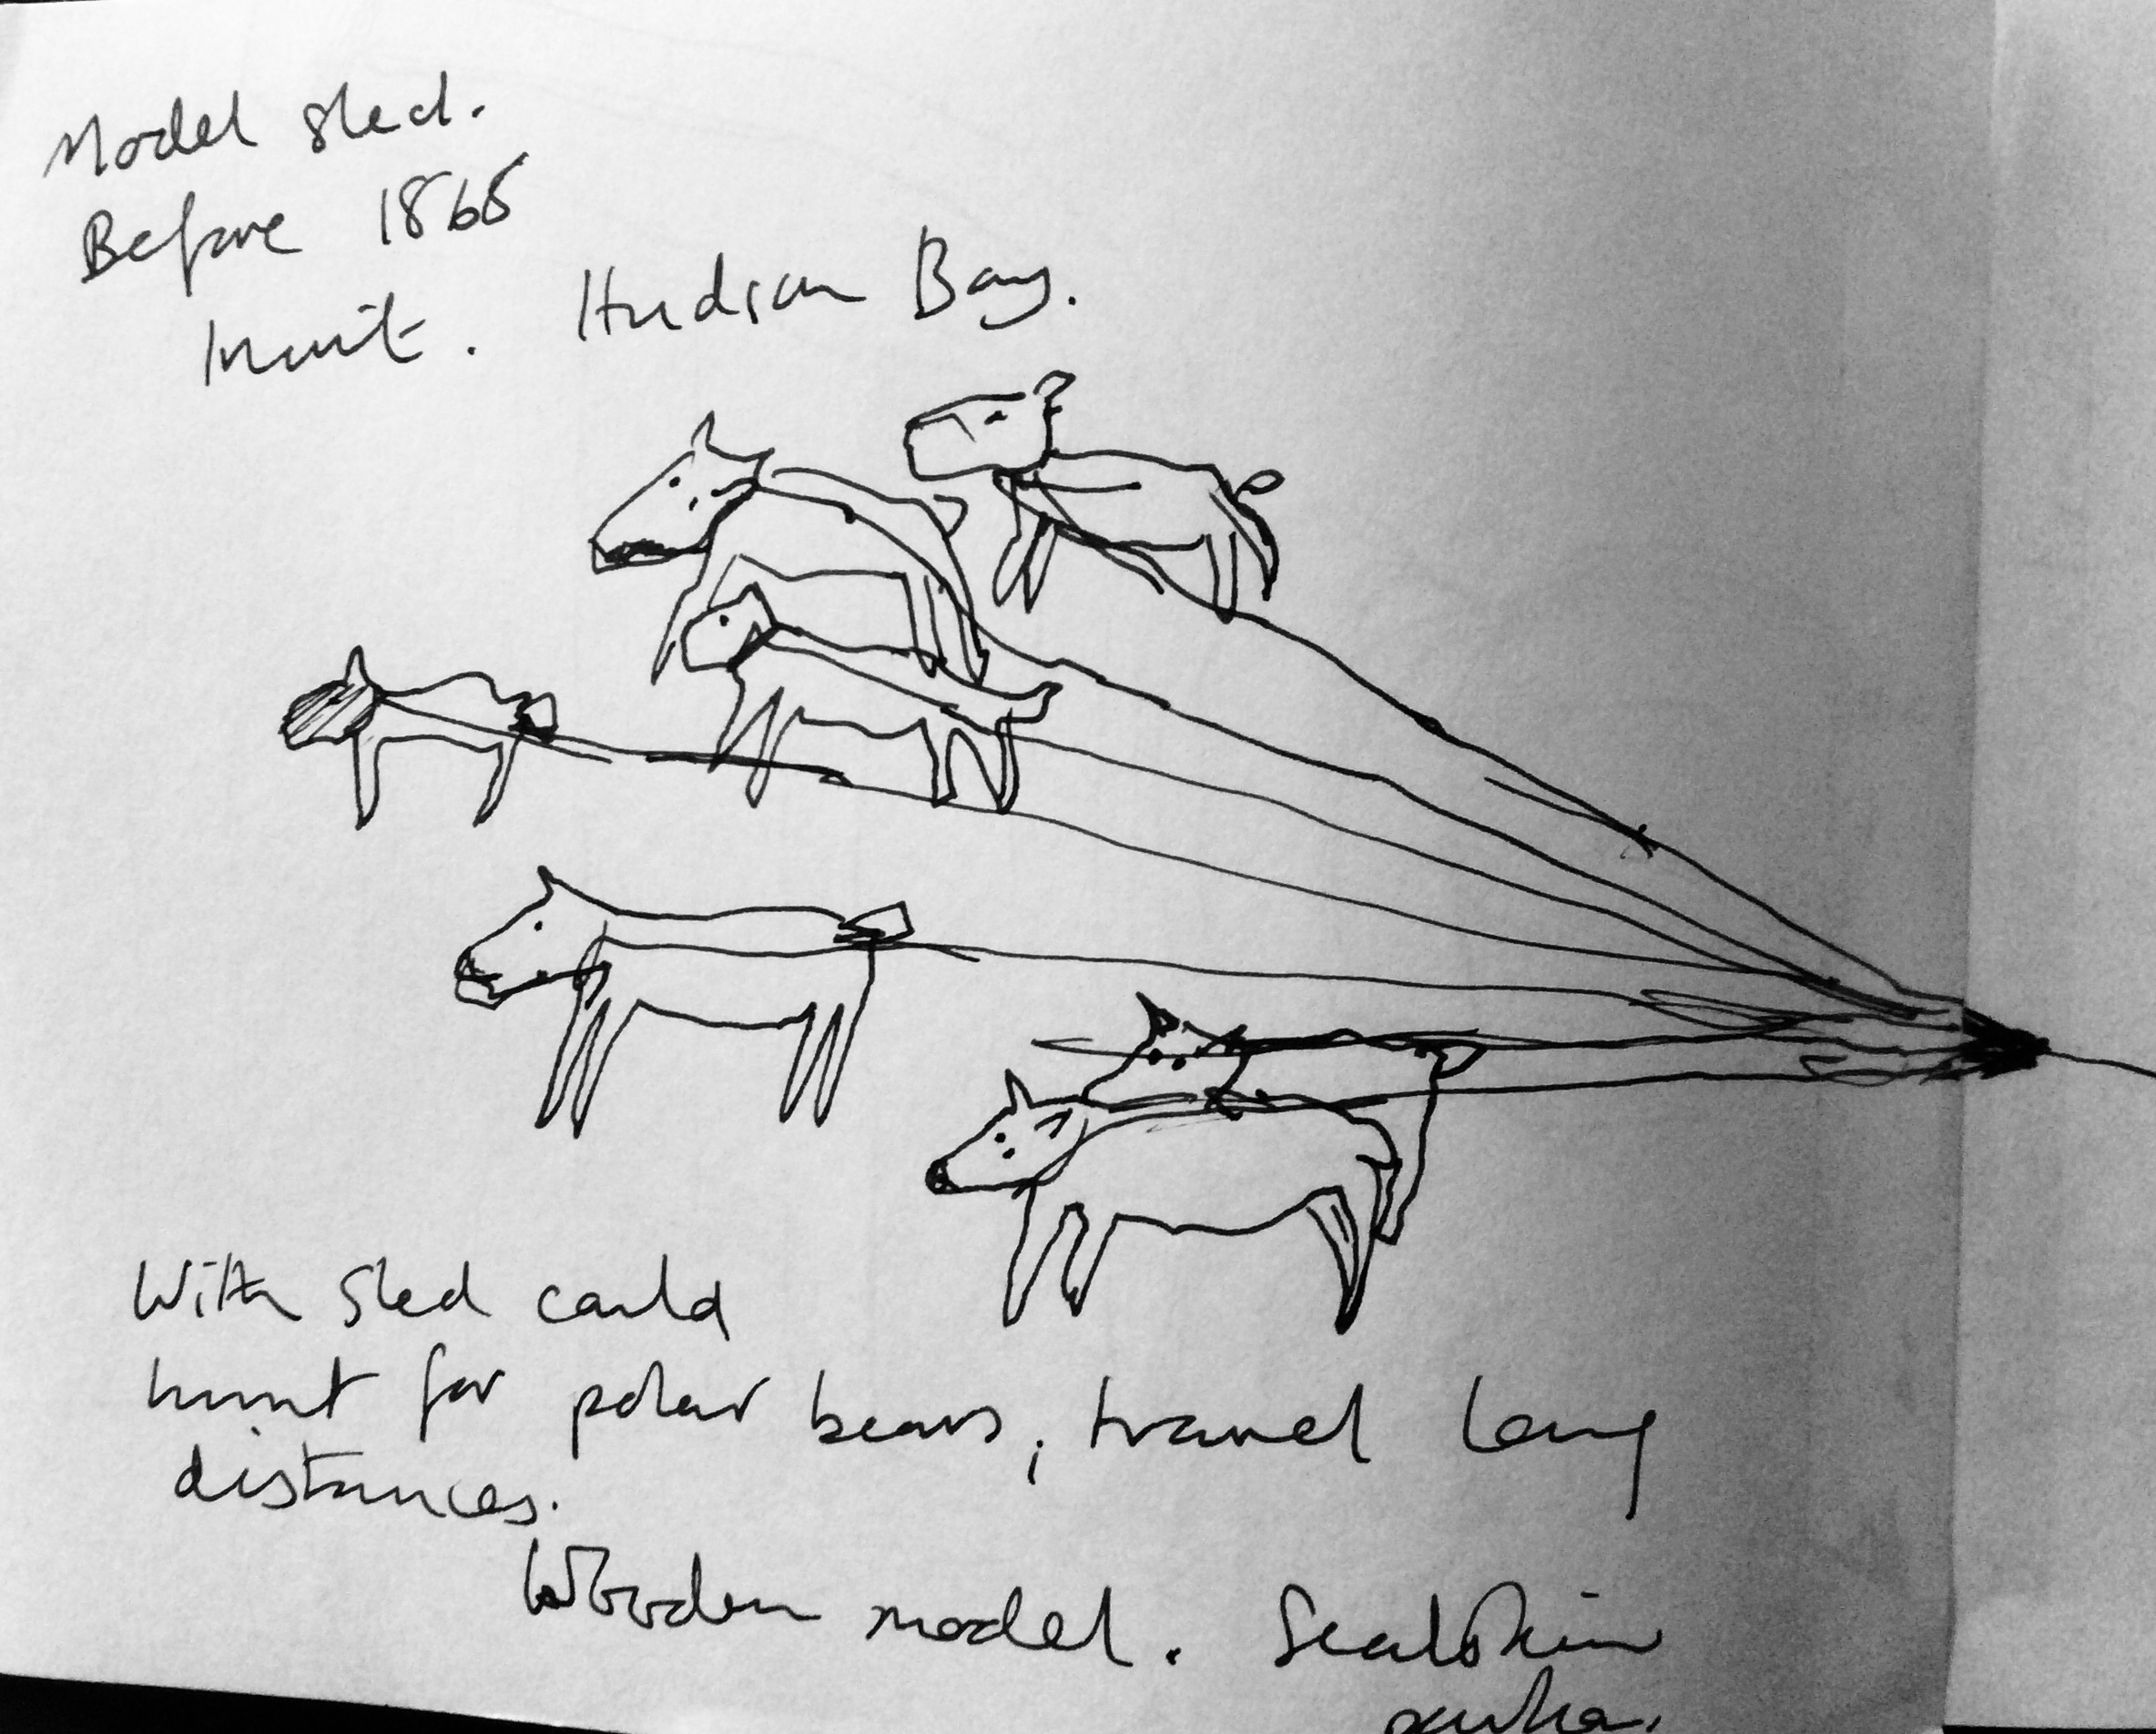 Model sled.
Before 1865
Inuit. Hudson Bay.
With sled could
hunt for polar bears, travel long
distances.
Wooden model. Sealskin
parka.